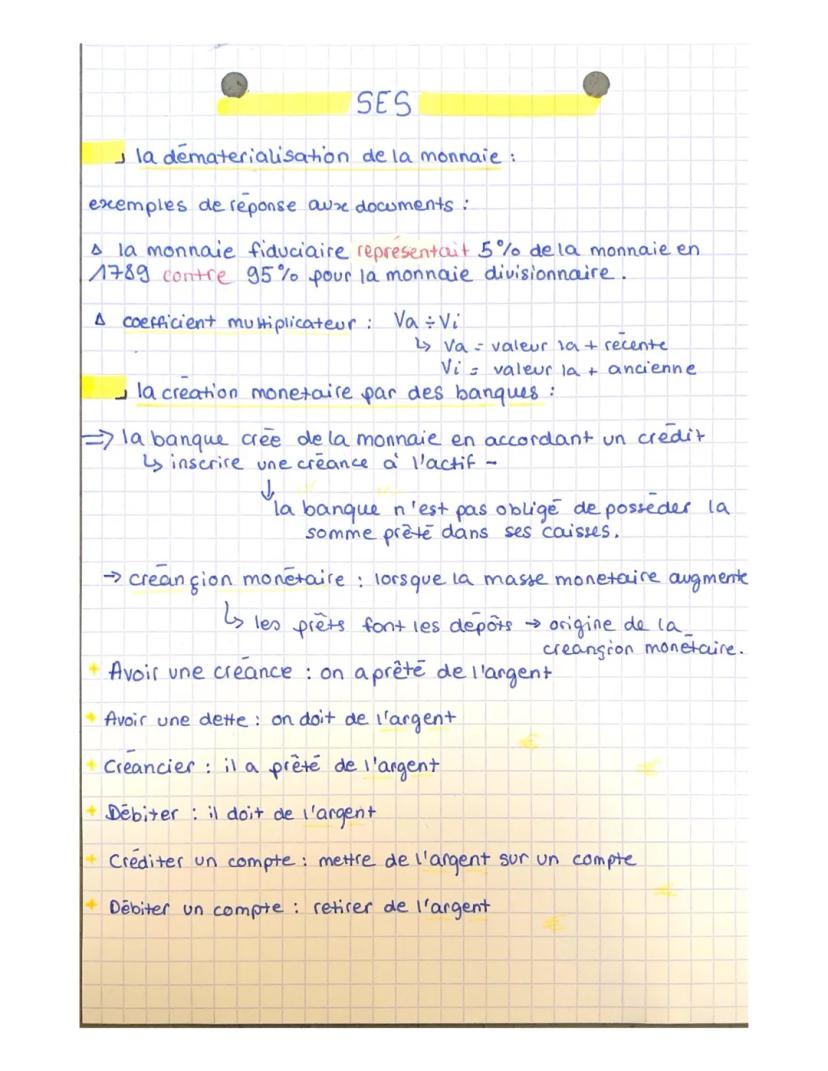 SES
la dématerialisation de la monnaie :
exemples de réponse aux documents :
∆ la monnaie fiduciaire représentait 5% de la monnaie en
1789 contre 95% pour la monnaie divisionnaire.
∆ coefficient multiplicateur : Va ÷ Vi
↳ Va = valeur la + récente
Vi = valeur la + ancienne
la création monetaire par des banques :
⇒ la banque crée de la monnaie en accordant un crédit
↳ inscrire une créance à l'actif -
↓
la banque n'est pas obligé de posséder la
somme prêté dans ses caisses.
→ créançion monétaire : lorsque la masse monetaire augmente
↳ les prêts font les dépôts → origine de la
creansion monétaire.
+ Avoir une créance : on a prêté de l'argent
+ Avoir une dette : on doit de l'argent
+ Créancier : il a prêté de l'argent
+ Débiter : il doit de l'argent
+ Créditer un compte : mettre de l'argent sur un compte
+ Débiter un compte : retirer de l'argent